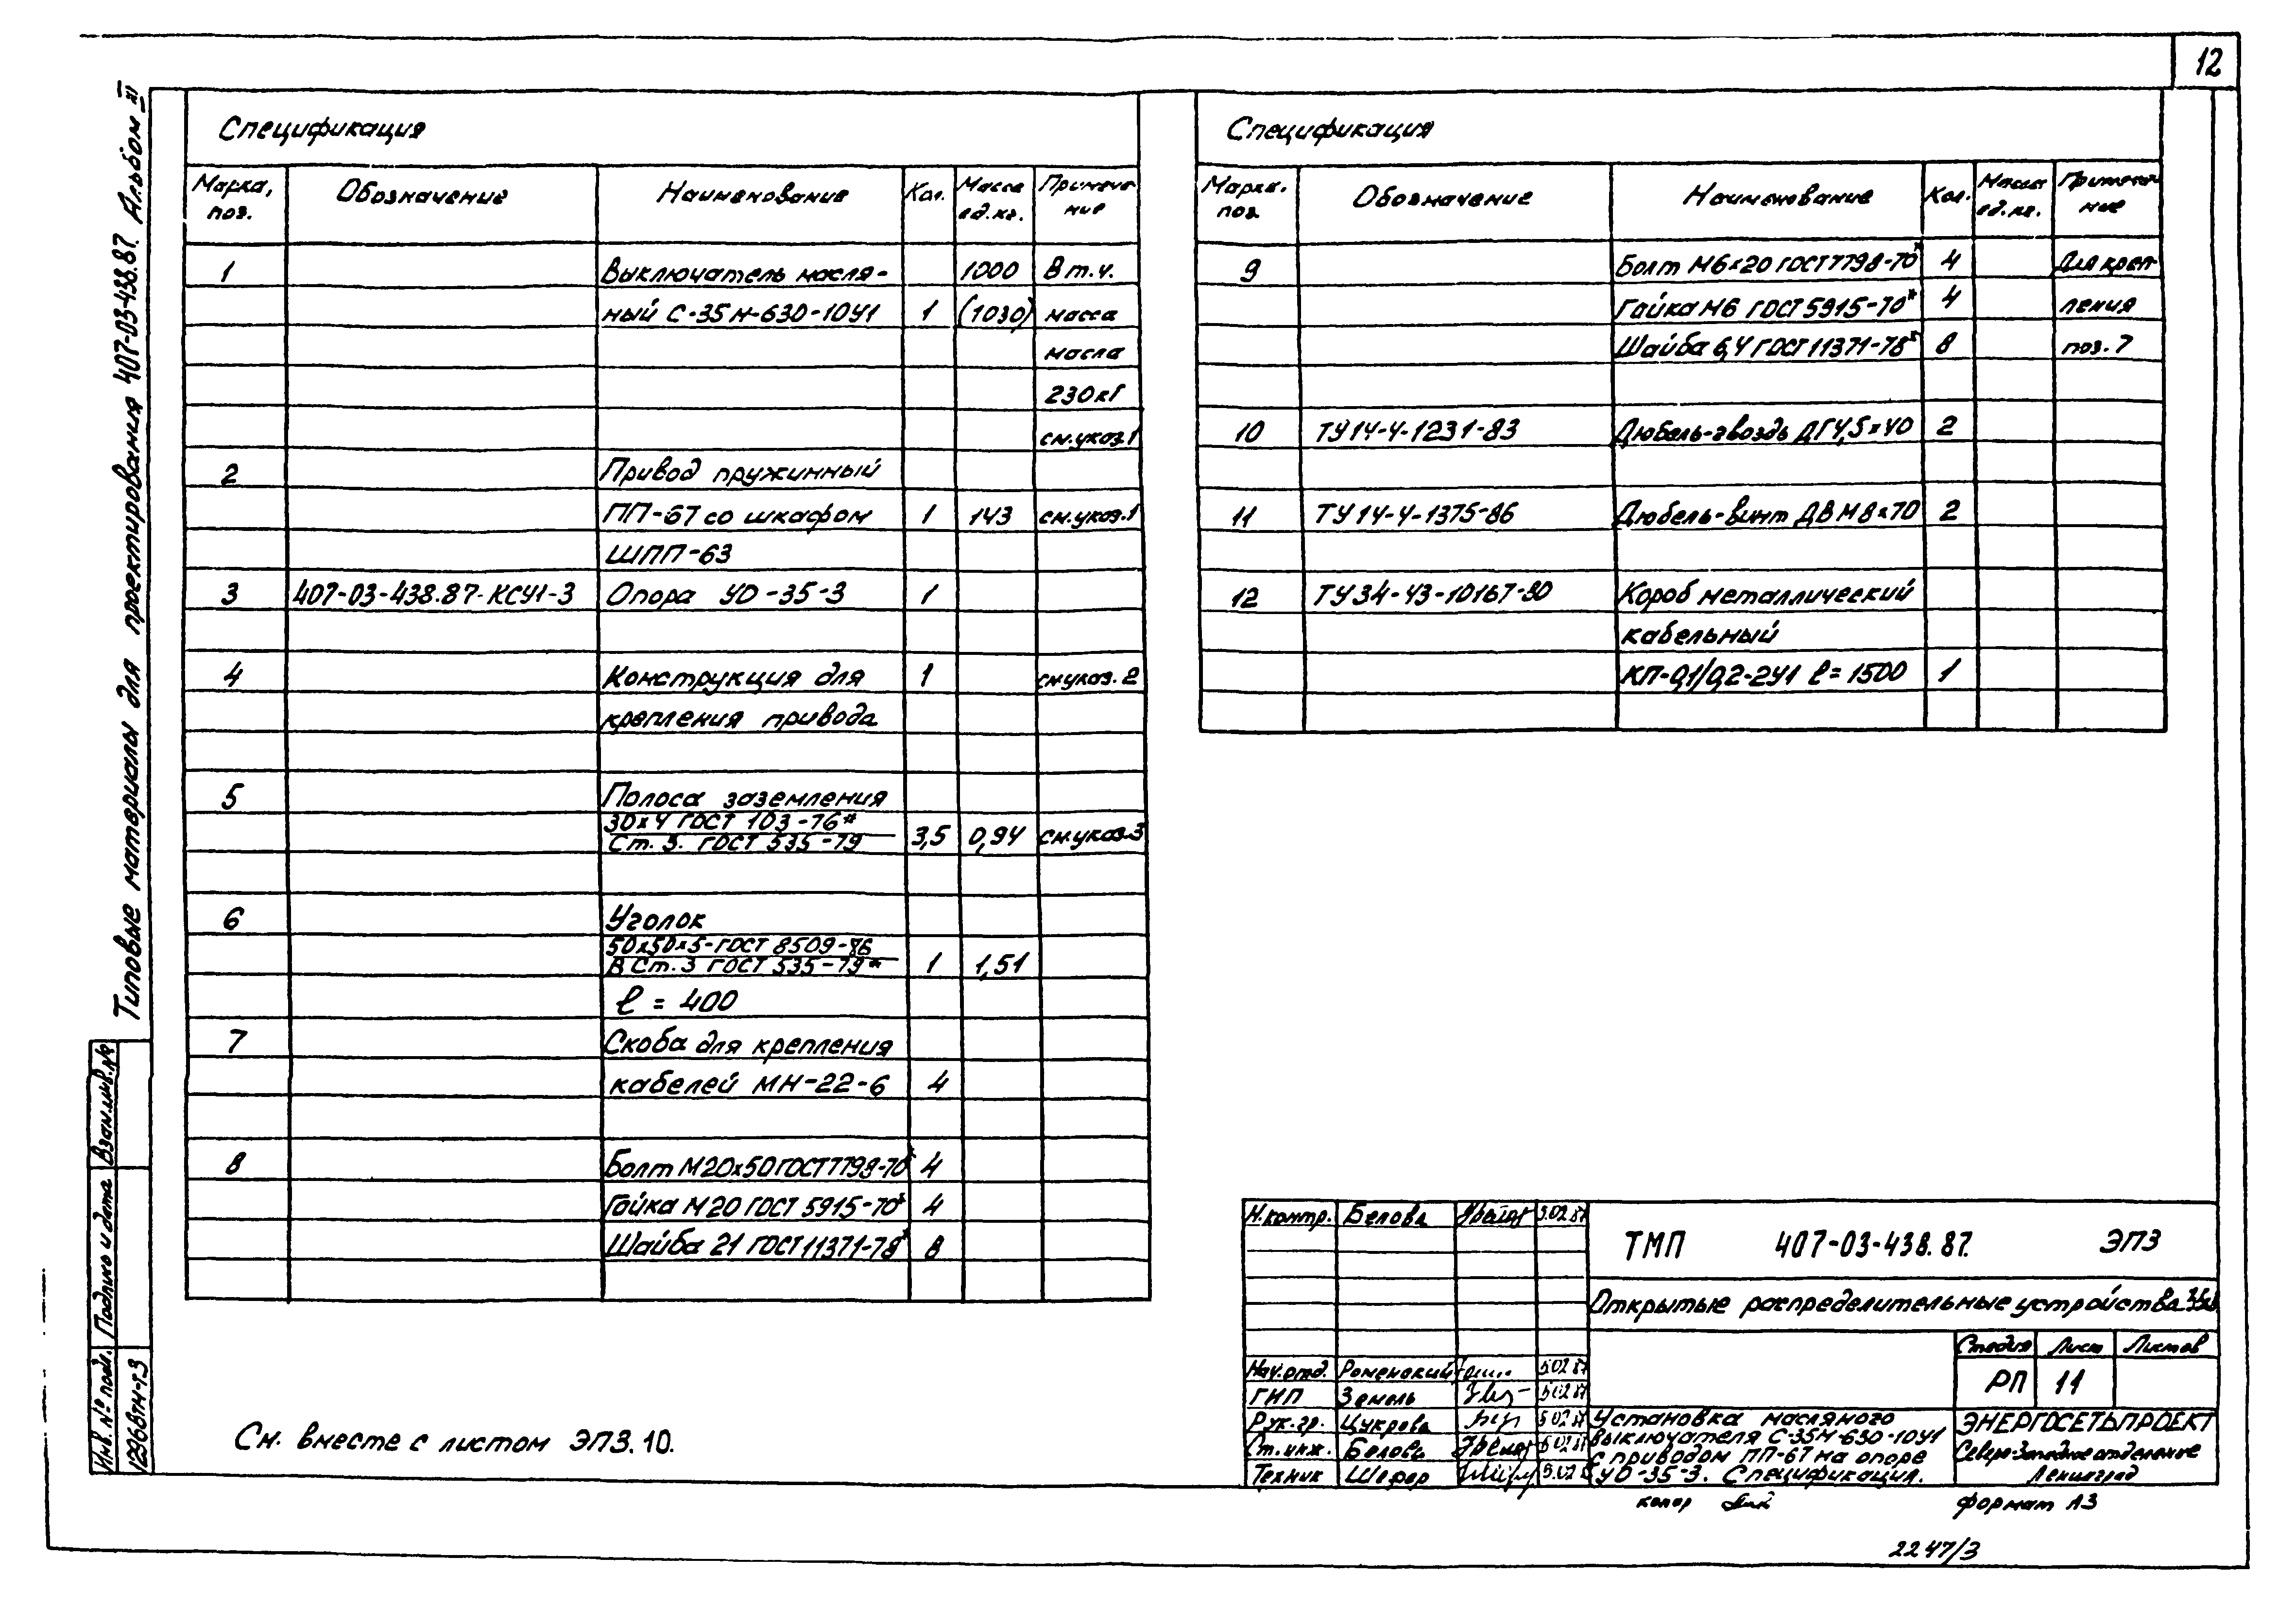 12
Типовые материалы для проектирования 407-03-438.87. Альбом
Взам.инв.№
Подпись и дата
Инв. № подл.
Спецификация
Марка, поз. Обозначение Наименование Кол. Масса ед.кг. Примечание
1 Выключатель масля- 1000 В т.ч.
ный С-35М-630-10У1 1 (1030) масса
масла
230кг
см.указ.1
2 Привод пружинный
ПП-67 со шкафом 1 143 см.указ.1
ШПП-63
3 407-03-438.87-КСУ1-3 Опора УО-35-3 1
4 Конструкция для 1 см.указ. 2
крепления привода
5 Полоса заземления
30х4 ГОСТ 103-76*
Ст. 3. ГОСТ 535-79 3,5 0,94 см.указ.3
6 Уголок
50х50х5-ГОСТ 8509-86
В Ст. 3 ГОСТ 535-79* 1 1,51
ℓ = 400
7 Скоба для крепления
кабелей МН-22-6 4
8 Болт М20х50 ГОСТ 7798-70* 4
Гайка М20 ГОСТ 5915-70* 4
Шайба 21 ГОСТ 11371-78* 8
См. вместе с листом ЭП3.10.
Спецификация
Марка. поз. Обозначение Наименование Кол. Масса ед.кг. Примечание
9 Болт М6х20 ГОСТ 7798-70* 4 Для креп-
Гайка М6 ГОСТ 5915-70* 4 ления
Шайба 6,4 ГОСТ 11371-78* 8 поз. 7
10 ТУ14-4-1231-83 Дюбель-гвоздь ДГ4,5х40 2
11 ТУ14-4-1375-86 Дюбель-винт ДВ М8х70 2
12 ТУ34-43-10167-80 Короб металлический
кабельный
КП-0,1/0,2-2У1 ℓ=1500 1
Н.контр. Белова 5.02.87
ТМП 407-03-438.87. ЭП3
Открытые распределительные устройства 35кВ
Стадия Лист Листов
РП 11
Нач.отд. Роменский 5.02.87
ГИП Земель 5.02.87
Рук.гр. Цукрова 5.02.87
Ст.инж. Белова 5.02.87
Техник Шефер 5.02.87
Установка масляного
выключателя С-35М-630-10У1
с приводом ПП-67 на опоре
УО-35-3. Спецификация.
ЭНЕРГОСЕТЬПРОЕКТ
Северо-Западное отделение
Ленинград
копир
формат А3
2247/3